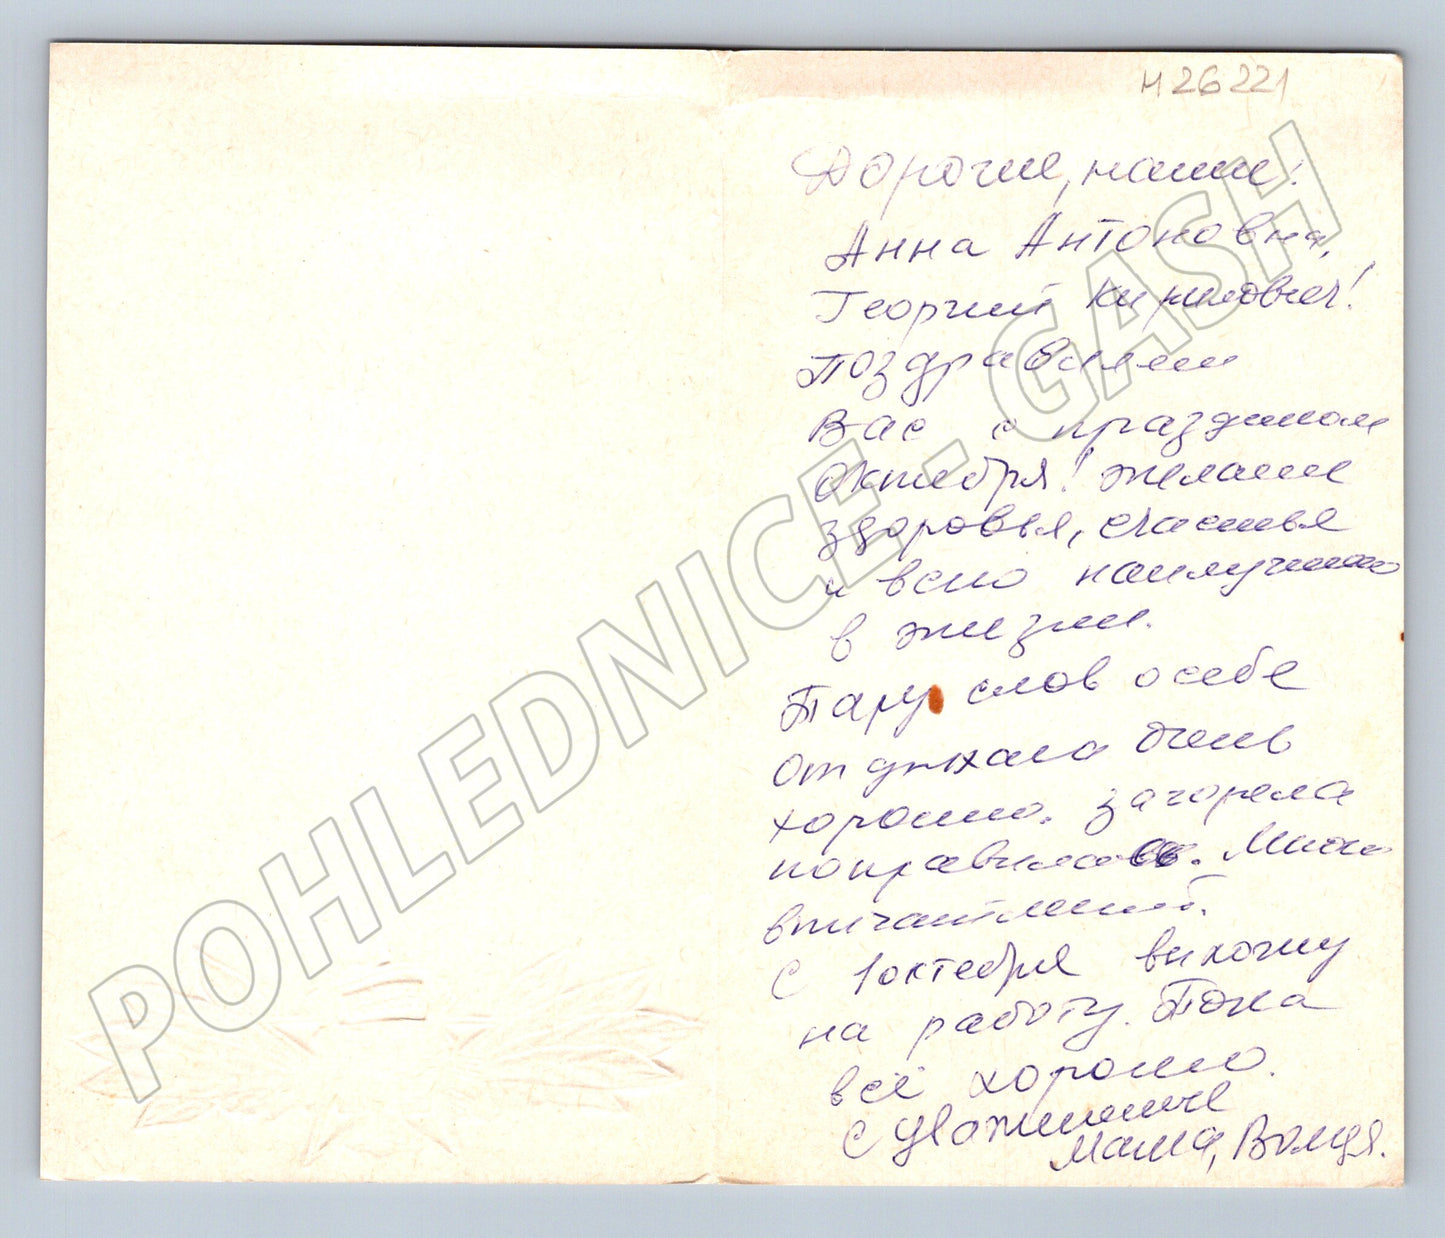 Н 26 221
Дорогие, наши!
Анна Антоновна,
Георгий Кирилович!
Поздравляем
Вас с праздником
Октября! Желаем
здоровья, счастья
и всего наилучшего
в жизни.
Пару слов о себе
Отдыхала очень
хорошо. Загорела
поправилась. Много
впичатлений.
С 1 октября выхожу
на работу. Пока
всё хорошо.
С уважением
Мама, Володя.
POHLEDNICE - GASH